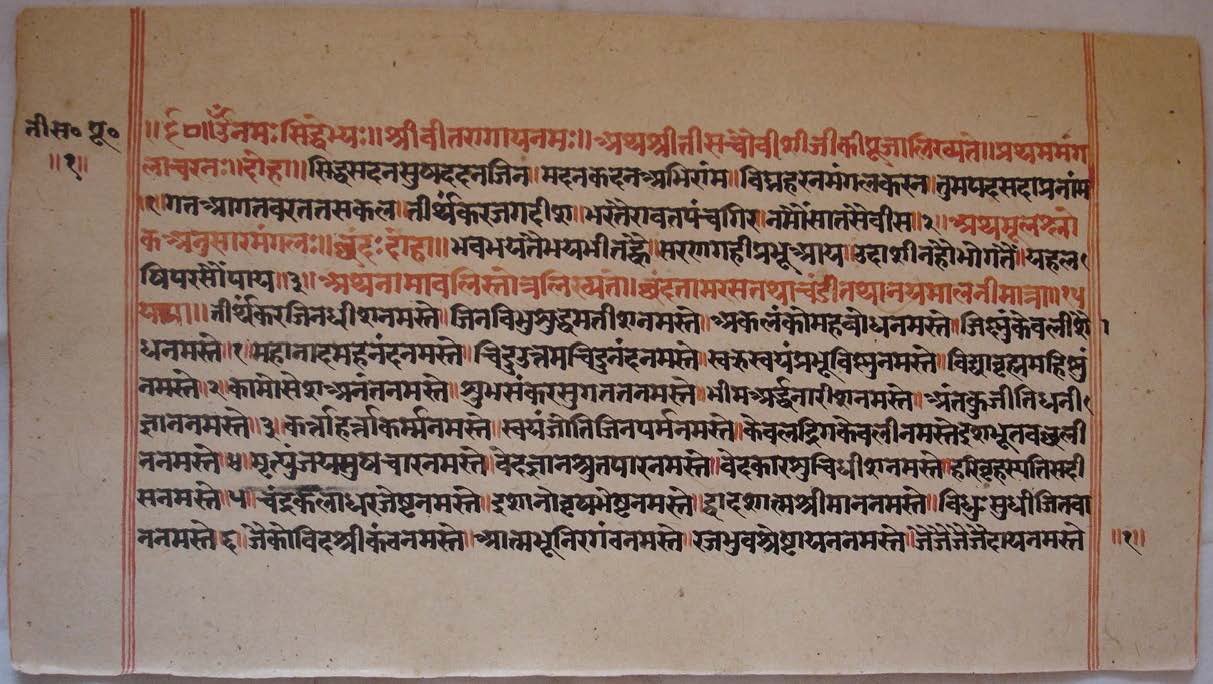 तीस॰ पू॰
॥१॥
॥६०॥ॐनमःसिद्धेभ्यः॥श्रीवीतरागायनमः॥अथश्रीतीसचौवीशीजीकीपूजालिख्यते॥प्रथममंग
लाचरनः॥दोहा॥सिद्धसदनसुषददनजिन॥मदनकदनअभिरांम॥विघ्नहरनमंगलकरन॥तुमपदसदाप्रनांम
१गतआगतवरततसकल॥तीर्थंकरजगदीश॥भरतैरावतपंचगिर॥नमौंसातसैवीस॥२॥अथमूलश्लो
कअनुसारमंगलः॥छंदःदोहा॥भवभयतैभयभीतह्वै॥सरणगहीप्रभूआय॥उदाशीनहौभोगतैं॥यहल
षिपरसौंपाय॥३॥अथनामावलिस्तोत्रलिख्यता॥छंदतामरसतथाचंडीतथानयमालनीमात्रा॥१५
॥तीर्थंकरजिनधीशनमस्ते॥जिनविभुशुद्धमतीशनमस्ते॥अकलंकोमहबोधनमस्ते॥जिश्नुंकेवलीशो
धनमस्ते॥१॥महानादमहनंदनमस्ते॥चिदुउत्तमचिदुनंदनमस्ते॥स्वरूस्वयंप्रभूविस्नुनमस्ते॥विद्यावृह्ममहिश्नुं
नमस्ते॥२॥कामोसेशअनंतनमस्ते॥शुभसंकरसुगतततनमस्ते॥भीमअर्द्धनारीशनमस्ते॥अंतकुजीतिधनी
ज्ञाननमस्ते॥३॥कर्त्ताहर्त्ताकर्म्मनमस्ते॥स्वयंजोतिजिनपर्मनमस्ते॥केवलद्रिगकेवलीनमस्तेइशभूतवच्छली
ननमस्ते॥४॥मृत्युंजयसुषचारनमस्ते॥वेदज्ञानश्रुतपारनमस्ते॥वेदकारशुचिधीशनमस्ते॥हरिवृहस्पतिसदी
सनमस्ते॥५॥चंद्रकलाधरजेष्टनमस्ते॥इशानोवृषभेष्टनमस्ते॥द्वादशात्मश्रीमाननमस्ते॥विधिःसुधीजितवा
ननमस्ते॥६॥जैकोविदश्रीकंवनमस्ते॥आत्मभूनिरगंवनमस्ते॥रजभुवश्रेष्टायननमस्ते॥जैजैजैजैजैदायनमस्ते
॥१॥